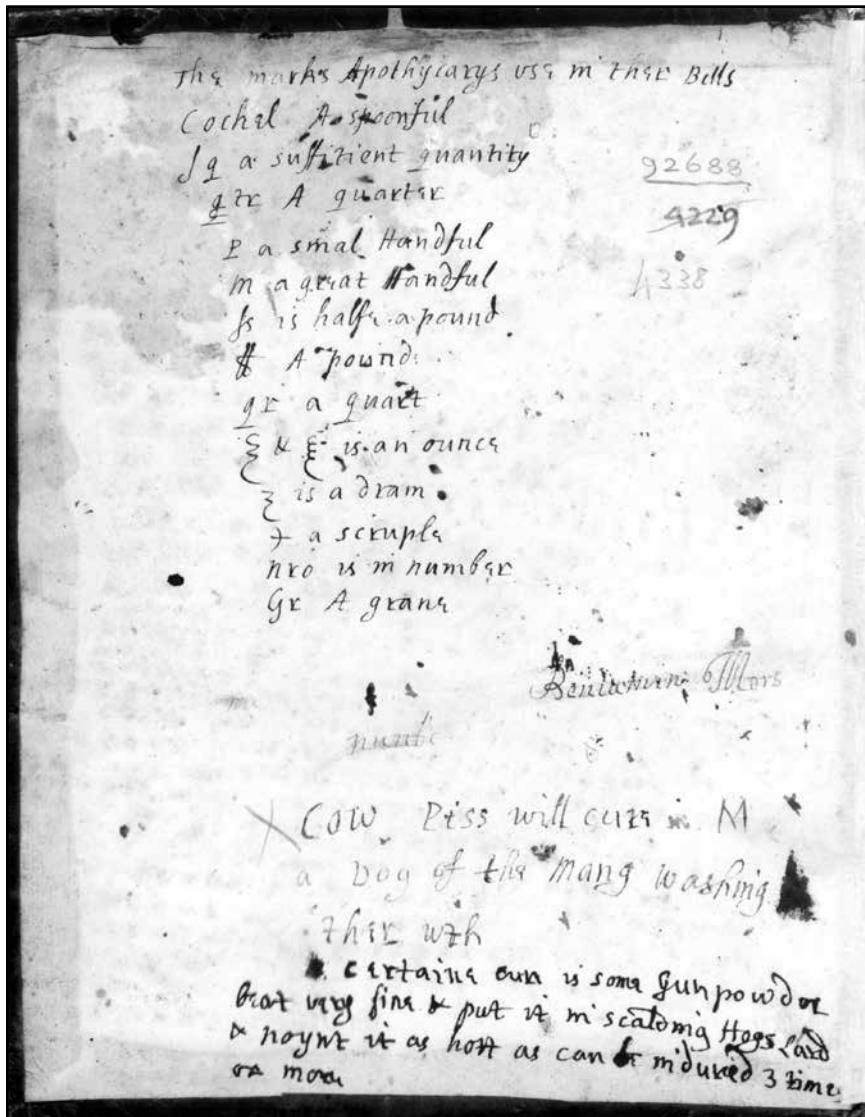 The marks Apothycarys use in ther Bills
Cochel A spoonful
ſq a suffitient quantity
92688
qtr A quarter
4229
P a smal Handful
M a great Handful
4338
ſs is halfe a pound
℔ A pound
qr a quart
℥ & ℥ is an ounce
ʒ is a dram
a scruple
nro is in number
Gr A grane
Mors
Cow Piss will cure M
a Dog of the Mang washing
ther wth
A certaine cure is some Gunpowder
beat very fine & put it in scalding Hogs Lard
& noynt it as hott as can be induried 3 time
or more